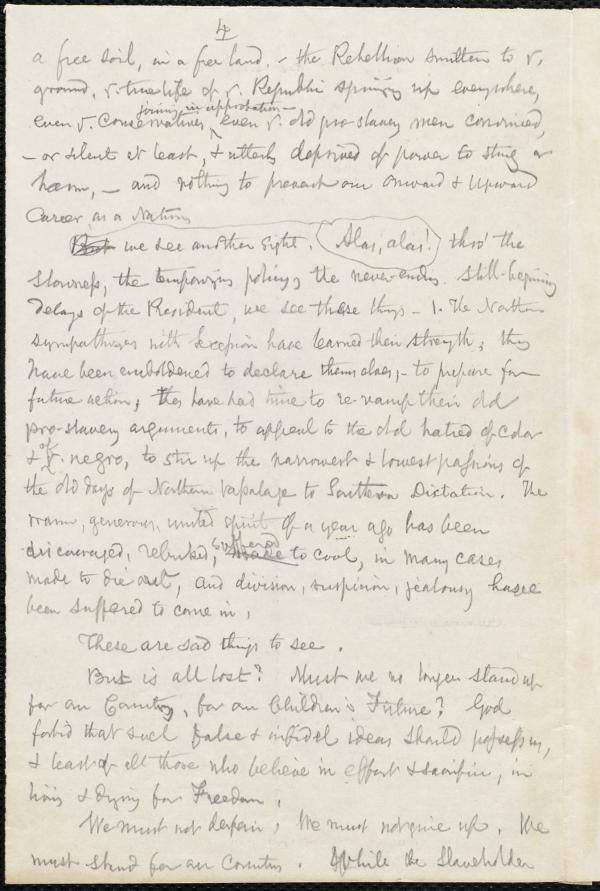 4
a free soil, in a free land, – the Rebellion smitten to y.
ground, y. true life of y. Republic springing up everywhere,
joining in approbation –
even y. Conservatives, even y. old pro-slavery men convinced,
– or silent at least, & utterly deprived of power to sting or
harm, – and nothing to prevent our Onward & Upward
Career, as a Nation
But we see another sight. Alas, alas! thro' the
slowness, the temporizing policy, the never-ending still-beginning
delays of the President, we see these things – 1. The Northern
sympathizers with secession have learned their strength; they
have been emboldened to declare themselves, – to prepare for
future action; they have had time to re-vamp their old
pro-slavery arguments, to appeal to the old hatred of Color
of
& y. negro, to stir up the narrowest & lowest passions of
the old days of Northern Vassalage to Southern Dictation. The
warm, generous, united spirit of a year ago has been
discouraged, rebuked, suffered made to cool, in many cases
made to die out, and division, suspicion, jealousy have
been suffered to come in,
These are sad things to see.
But is all lost? Must we no longer stand up
for our Country, for our Children's Future? God
forbid that such false & infidel ideas should possess us,
& least of all those who believe in effort & sacrifice, in
living & dying for Freedom.
We must not despair, We must not give up. We
must stand for our Country. While the Slaveholder